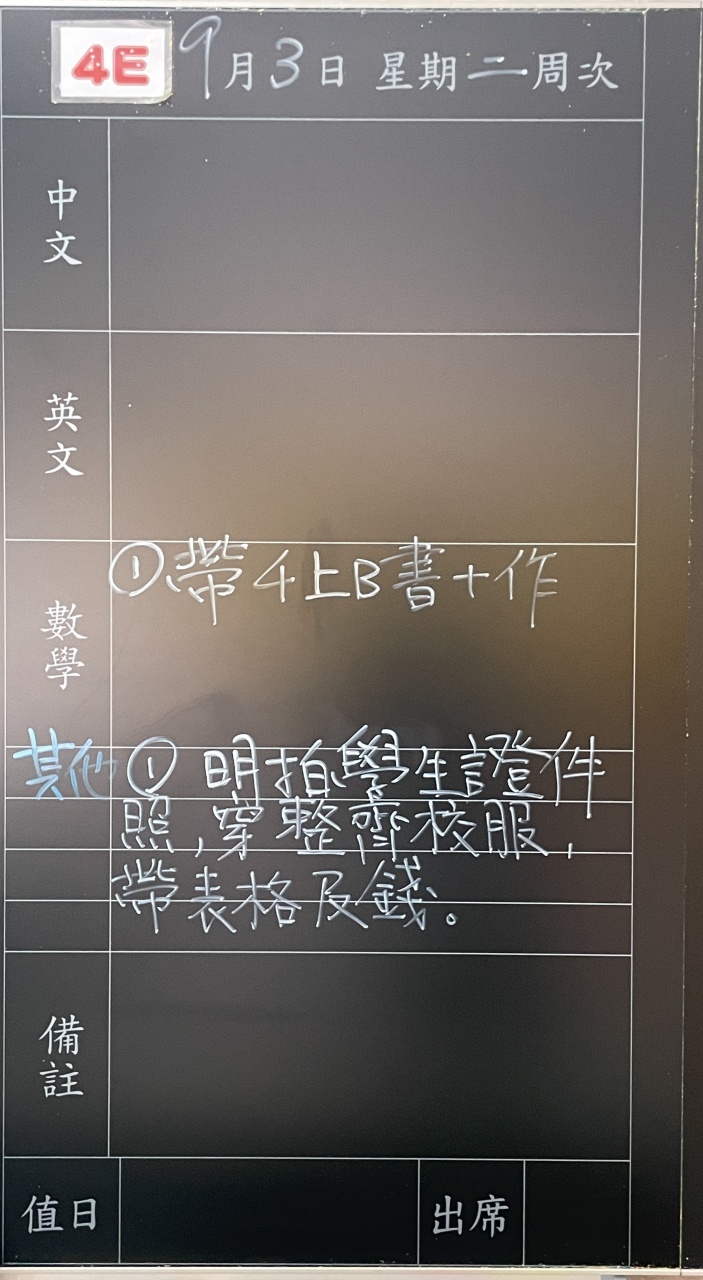 4E 9月3日 星期二周次
中文
英文
數學 ①帶4上B書+作
其他 ① 明拍學生證件
照,穿整齊校服,
帶表格及錢。
備註
值日 出席